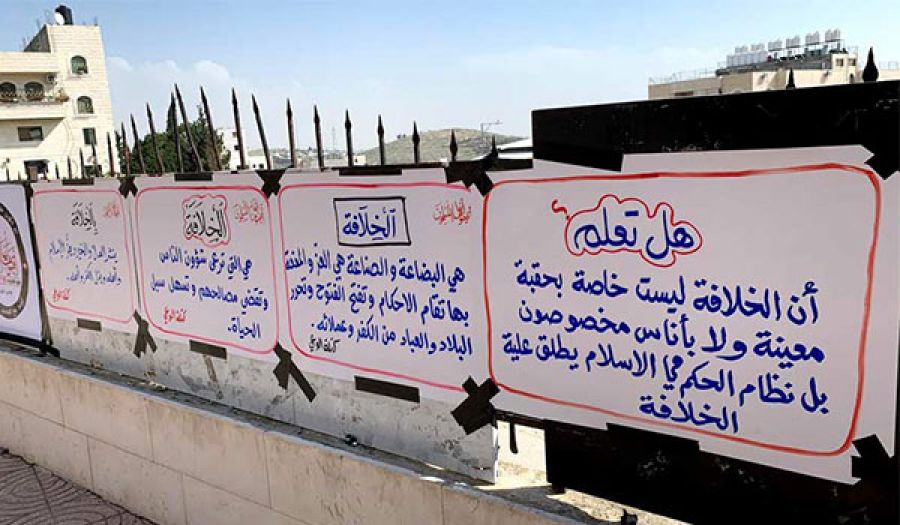 هل تعلم
أن الخلافة ليست خاصة بحقبة
معينة ولا بأناس مخصوصون
بل نظام الحكم في الاسلام يطلق علية
الخلافة
الخلافة
هي البضاعة والصناعة هي العز والمنعة
بها تقام الاحكام وتفتح الفتوح وتحرر
البلاد والعباد من الكفر وعملائه.
كتلة الوعي
الخلافة
هي التي ترعى شؤون الناس
وتقضي مصالحهم وتسهل سبل
الحياة.
كتلة الوعي
الخلافة
كتلة الوعي